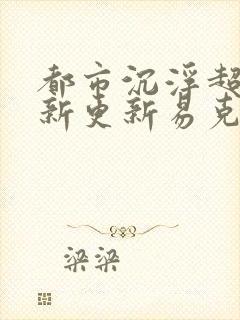 都市沉浮超
新更新易克
梁梁